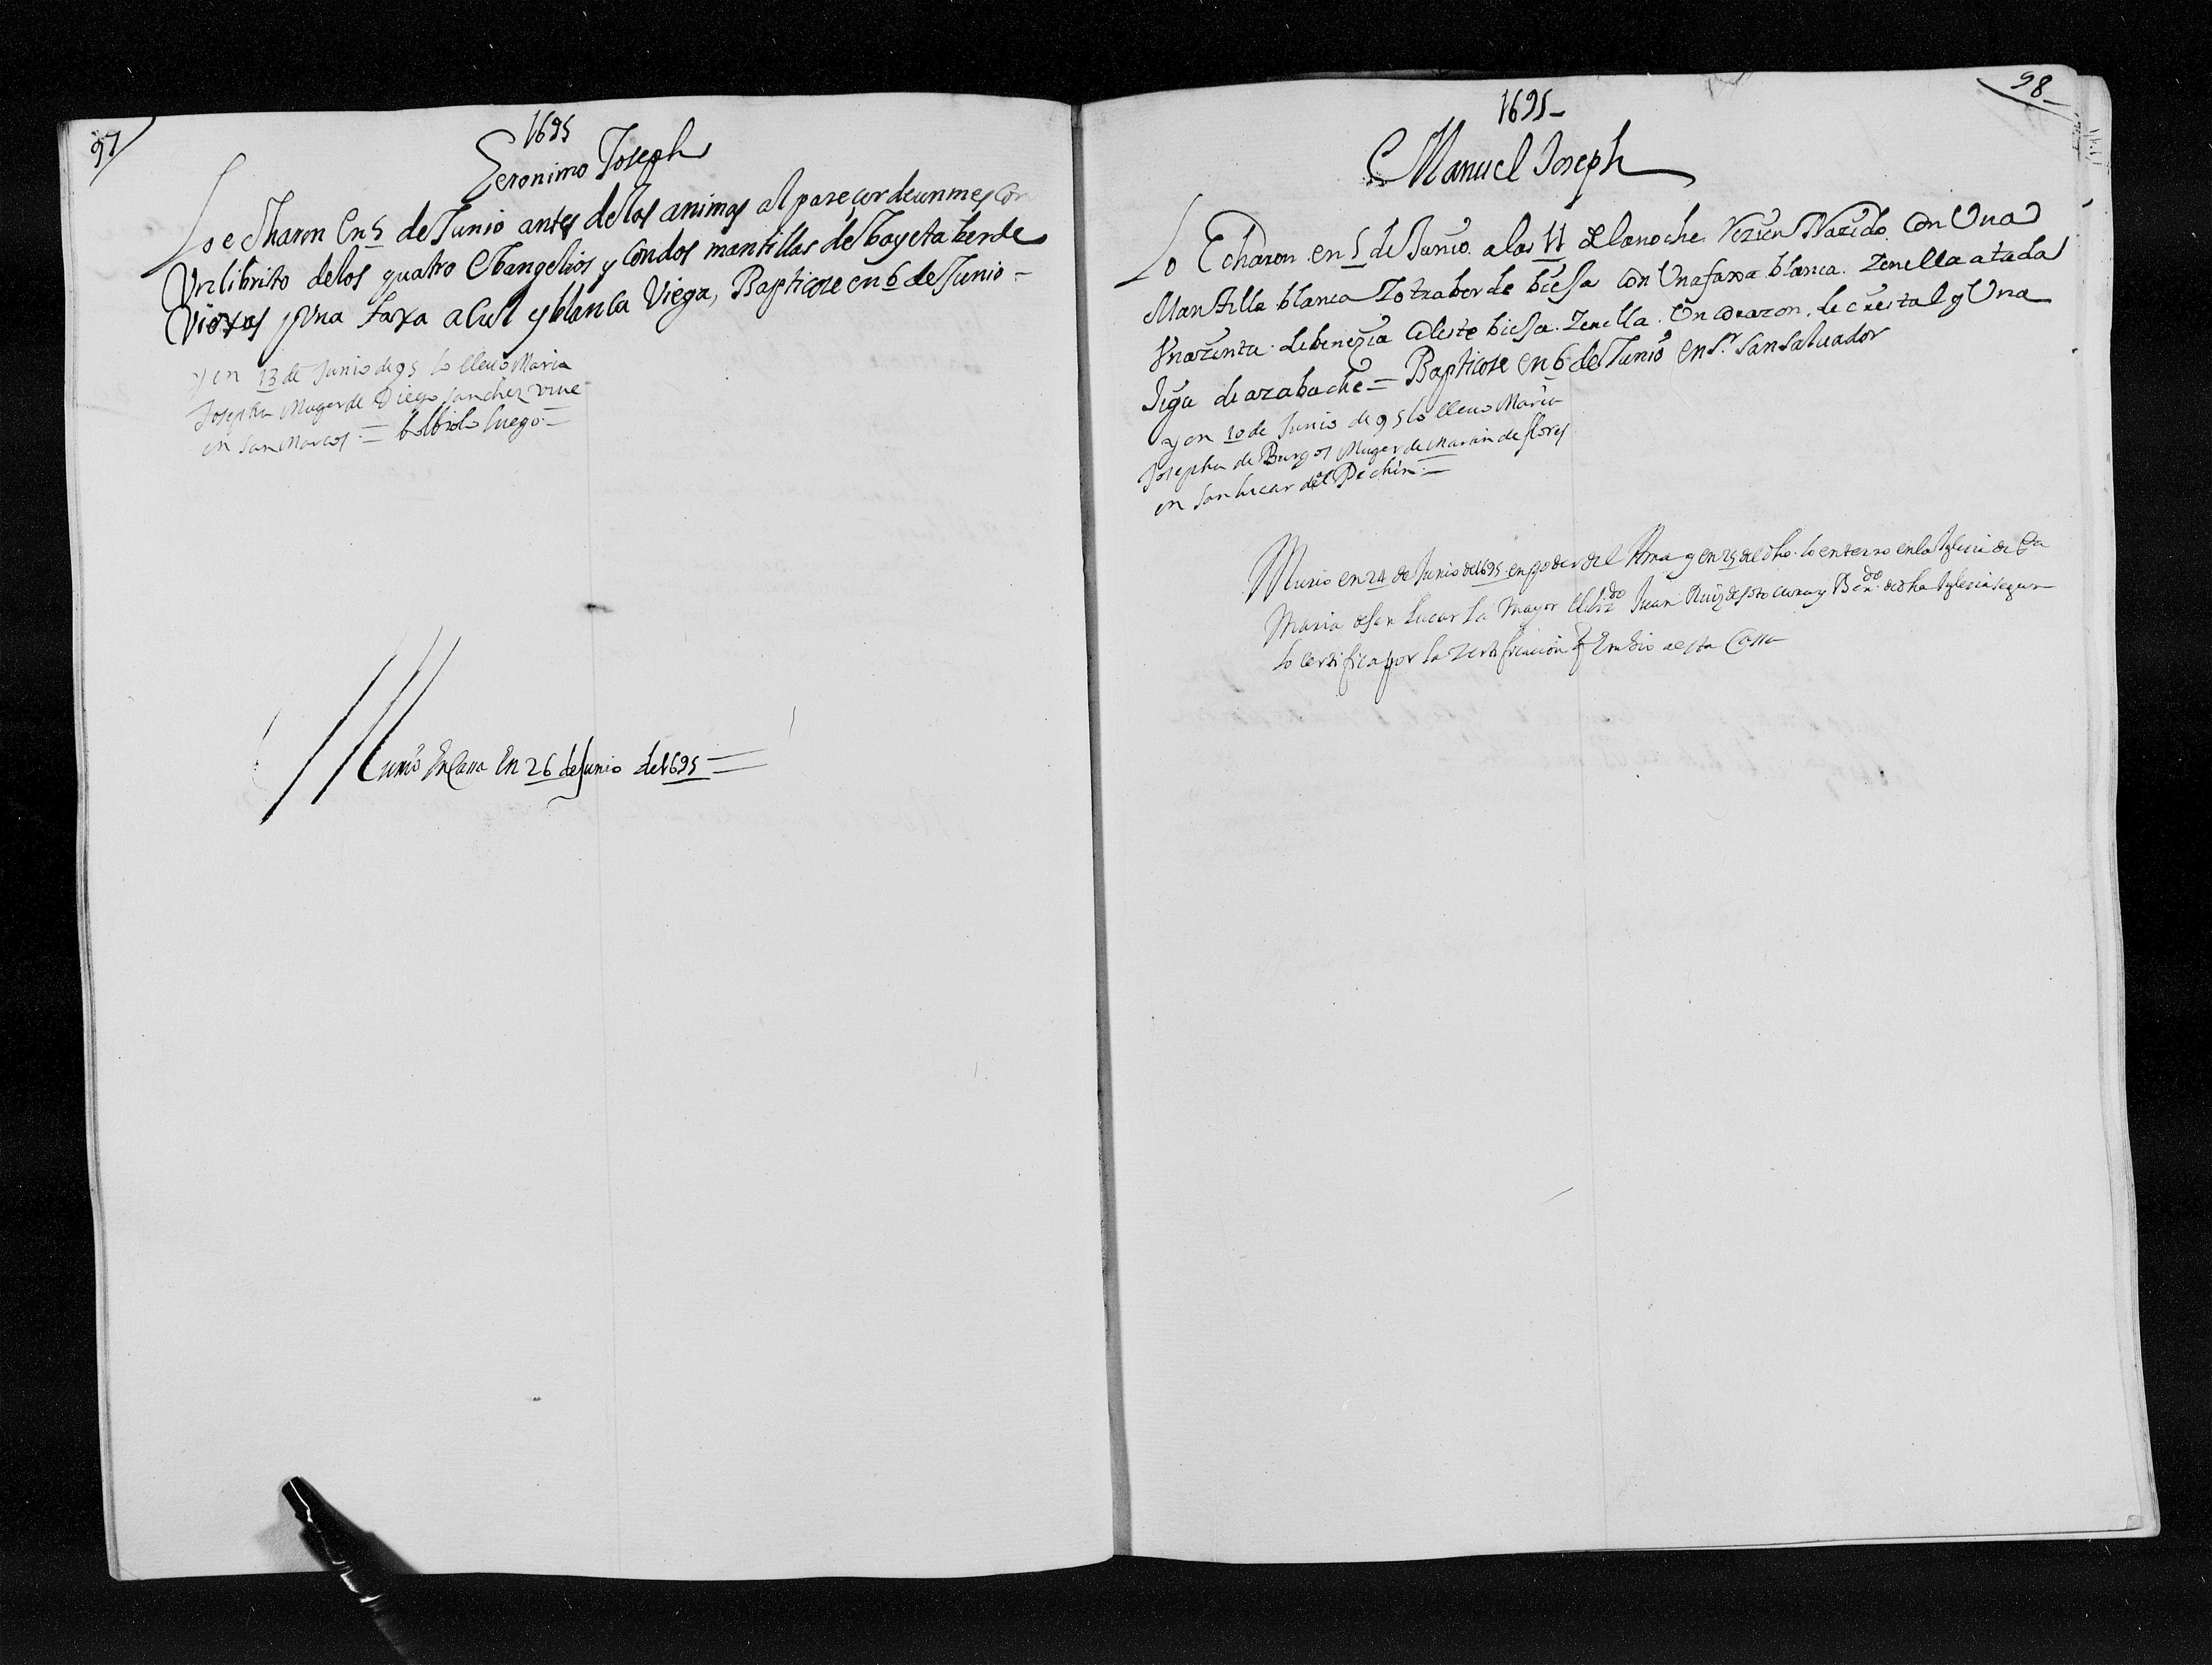 97
1695
Geronimo Joseph
Lo echaron en 5 de Junio antes de las animas al pareçer de un mes con
Un librito de los quatro Ebangelios y con dos mantillas de bayeta berde
Viexas y Una faxa açul y blanca Viega, Bapticose en 6 de Junio =
y en 13 de Junio de 95 lo lleuo Maria
Josepha Muger de Diego Sanchez viue
en San Marcos = bolbiolo luego =
Murió En Cassa En 26 de Junio de 1695 =
98
1695
Manuel Joseph
Lo Echaron en 5 de Junio a las 11 de la noche Rezien Nazido Con Una
Mantilla blanca I otra berde biexa con Una faxa blanca I en ella atada
Una zinta de benezia Celeste biexa I en ella Un corazon de cristal y Una
Iga de azabache = Bapticose en 6 de Junio en Sr San Saluador
y en 10 de Junio de 95 lo lleuo Maria
Josepha de Burgos Muger de Martin de flores
en San lucar del Pechin =
Murio en 24 de Junio de 1695 en poder del Ama y en 25 del dho lo enterro en la Iglesia de Sta
Maria de San Lucar La Mayor el Lizdo Juan Ruiz de soto cura y Bendo de dha Iglesia segun
lo certifica por la zertificacion q Embio a esta Cassa